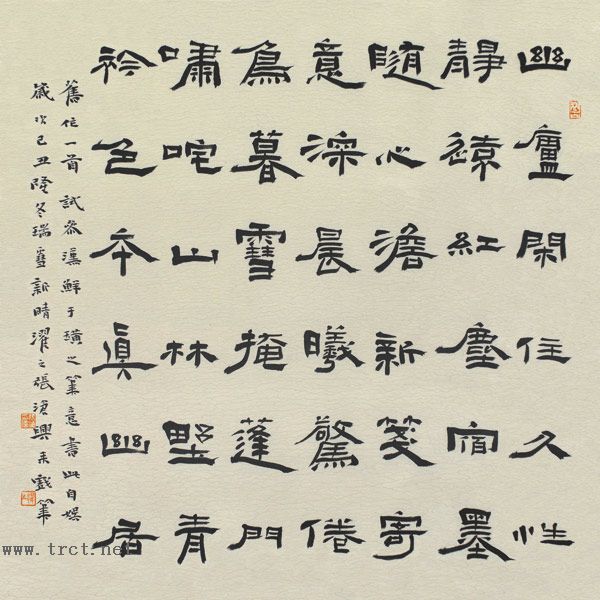 幽廬閑住久性
靜遠紅塵宿墨
随心澹新箋寄
意深晨曦驚倦
鳥暮雪掩蓬門
嘯咤山林野青
衿色本真幽居
舊作一首試參漢鮮于璜之筆意書此自娛
歲次己丑隆冬瑞雪新晴濯之張興來戲筆
www.trct.net